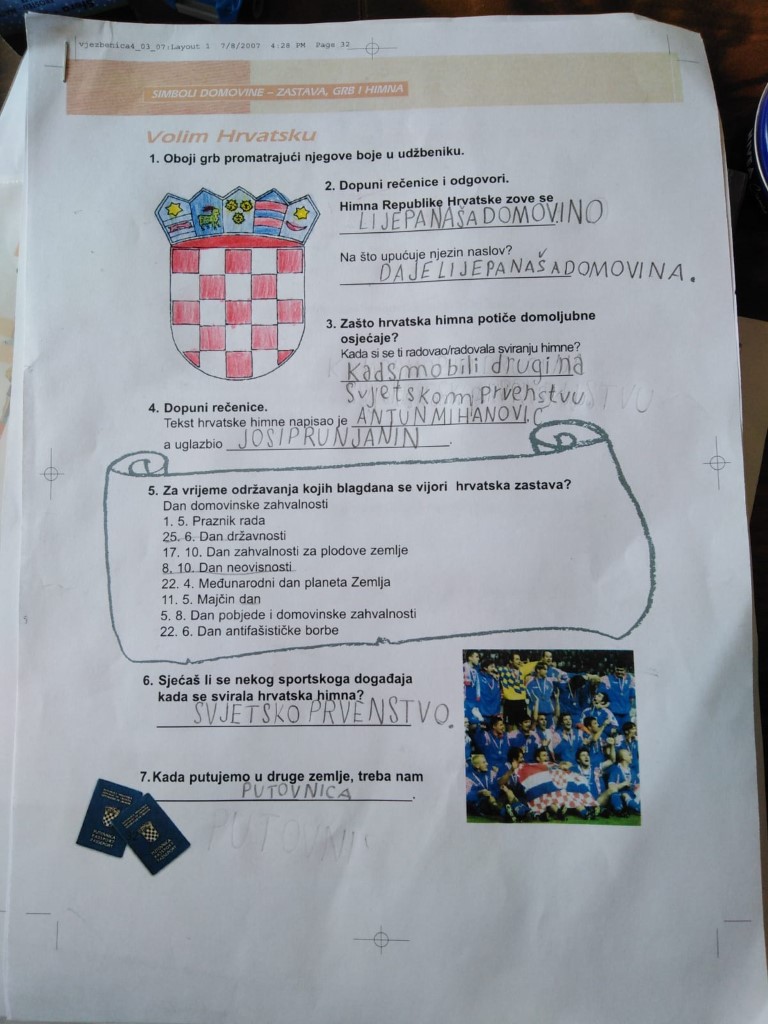 vjezbenica4_03_07:Layout 1 7/8/2007 4:28 PM Page 32
SIMBOLI DOMOVINE – ZASTAVA, GRB I HIMNA
Volim Hrvatsku
1. Oboji grb promatrajući njegove boje u udžbeniku.
2. Dopuni rečenice i odgovori.
Himna Republike Hrvatske zove se
LIJEPA NAŠA DOMOVINO
Na što upućuje njezin naslov?
DA JE LIJEPA NAŠA DOMOVINA.
3. Zašto hrvatska himna potiče domoljubne
osjećaje?
Kada si se ti radovao/radovala sviranju himne?
Kad smo bili drugi na
Svjetskom prvenstvu
4. Dopuni rečenice.
Tekst hrvatske himne napisao je ANTUN MIHANOVIĆ
a uglazbio JOSIP RUNJANIN.
5. Za vrijeme održavanja kojih blagdana se vijori hrvatska zastava?
Dan domovinske zahvalnosti
1. 5. Praznik rada
25. 6. Dan državnosti
17. 10. Dan zahvalnosti za plodove zemlje
8. 10. Dan neovisnosti
22. 4. Međunarodni dan planeta Zemlja
11. 5. Majčin dan
5. 8. Dan pobjede i domovinske zahvalnosti
22. 6. Dan antifašističke borbe
6. Sjećaš li se nekog sportskoga događaja
kada se svirala hrvatska himna?
SVJETSKO PRVENSTVO.
7. Kada putujemo u druge zemlje, treba nam
PUTOVNICA.
PUTOVNI